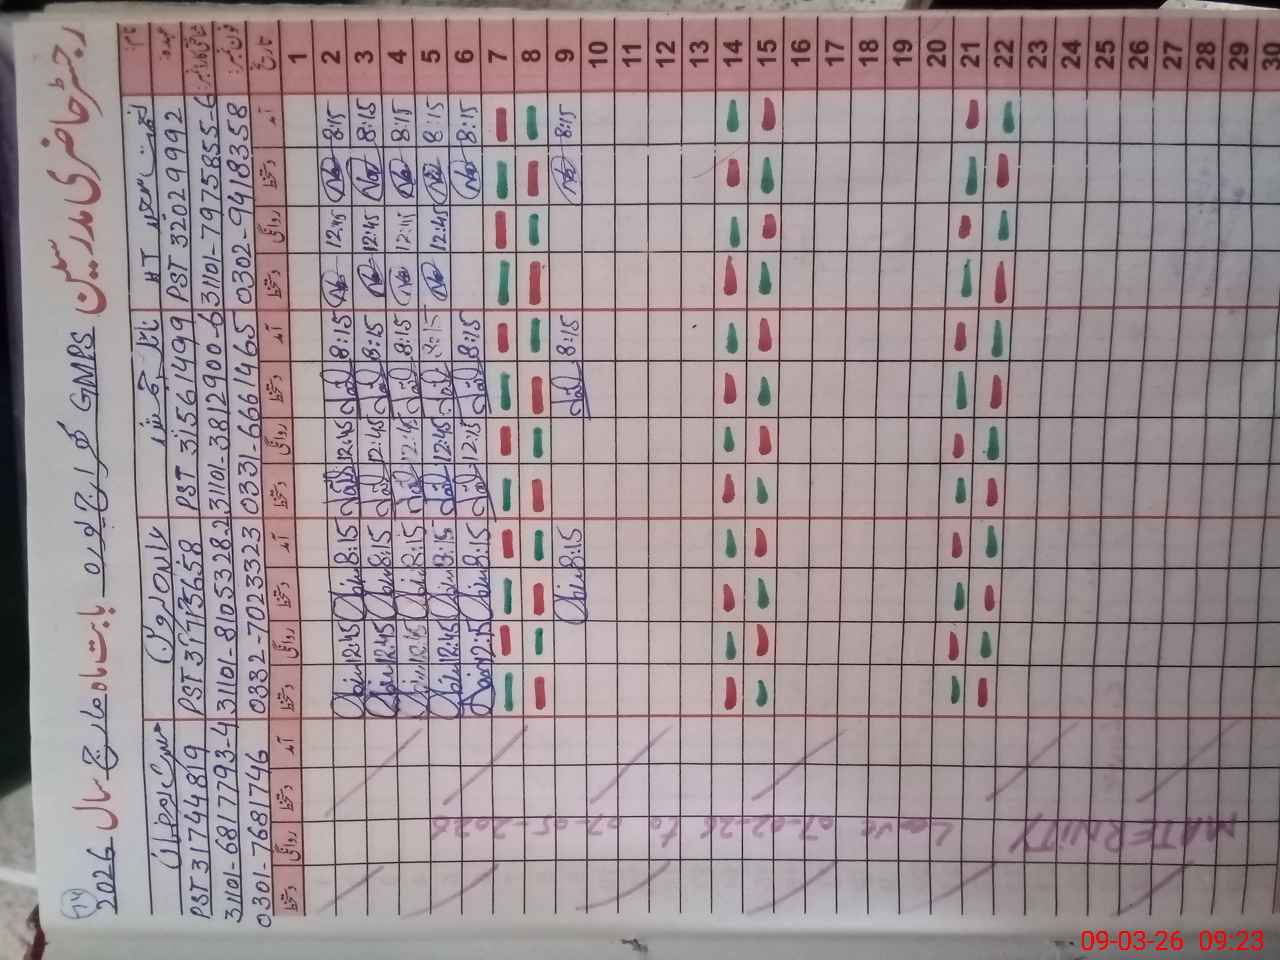 رجسٹر حاضری مدرسین GMPS بابت ماہ مارچ سال 2026
74
نام:
عہدہ
شناختی کارڈ نمبر:
فون نمبر:
HT
PST 32029992
31101-7975855-6
0302-9418358
PST 31561499
31101-3812900-6
0331-6661465
PST 31713658
31101-8105328-2
0332-7023323
PST 31744819
31101-6817793-4
0301-7681746
تاریخ آمد دستخط روانگی دستخط آمد دستخط روانگی دستخط آمد دستخط روانگی دستخط آمد دستخط روانگی دستخط
1
2 8:15 12:45 8:15 12:45 8:15 12:45
3 8:15 12:45 8:15 12:45 8:15 12:45
4 8:15 12:45 8:15 12:45 8:15 12:45
5 8:15 12:45 8:15 12:45 8:15 12:45
6 8:15 8:15 12:15 8:15 12:15
7
8
9 8:15 8:15 8:15
10
11
12
13
14
15
16
17
18
19
20
21
22
23
24
25
26
27
28
29
30
MATERNITY
Leave 07-02-26 to 07-05-2026
09-03-26 09:23